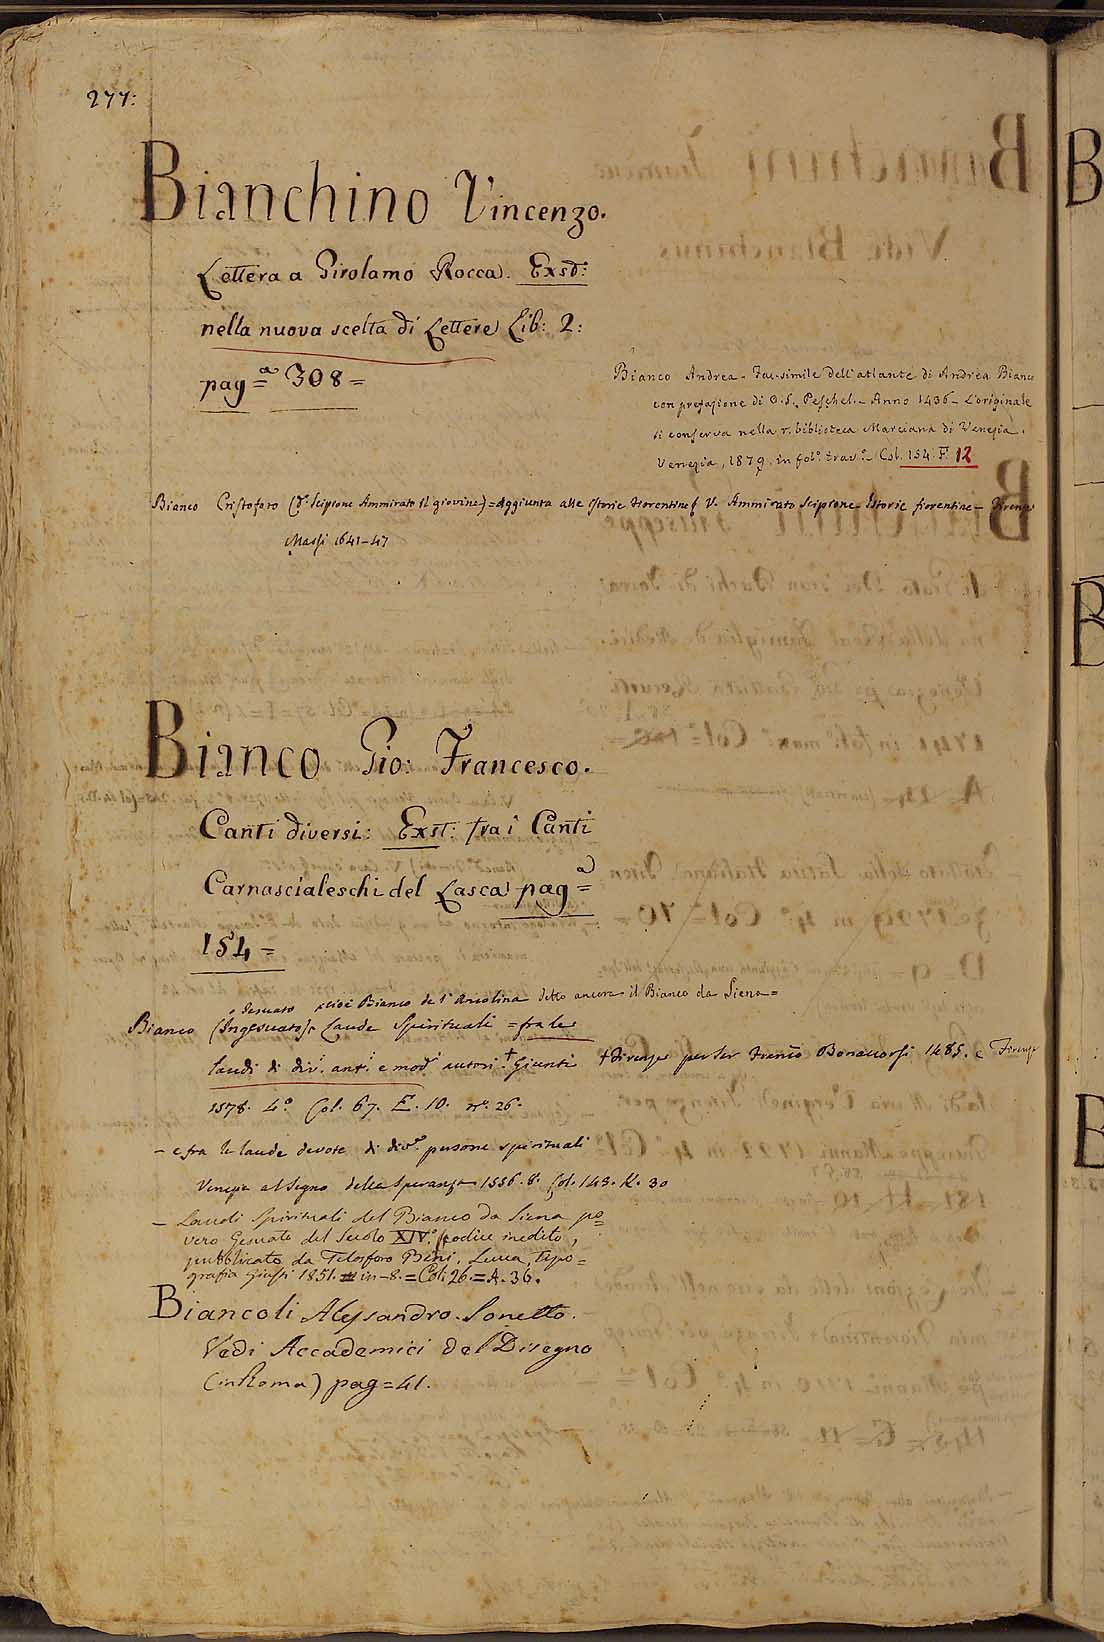 277:
Bianchino Vincenzo.
Lettera a Girolamo Rocca. Exsᵈ:
nella nuova scelta di Lettere Lib: 2:
pag=ᵃ 308=
Bianco Andrea - Fac-simile dell'atlante di Andrea Bianco
con prefazione di O. S. Peschel. - Anno 1436 - L'originale
si conserva nella r. biblioteca Marciana di Venezia.
Venezia, 1879. in fol.º trav.º - Col. 154. F. 12
Bianco Cristoforo (Sr. Scipione Ammirato il giovine) = Aggiunta alle Istorie fiorentine V. Ammirato Scipione - Istorie fiorentine - Firenze
Massi 1641-47
Bianco Gio: Francesco.
Canti diversi: Exst: fra i Canti
Carnascialeschi del Lasca pag=ᵃ
154=
o Gesuato cioè Bianco de l'Ancolina detto ancora il Bianco da Siena=
Bianco (Ingesuato) Laude Spirituali = fra le
laudi di div.ⁱ ant.ⁱ e mod.ⁱ autori.† Giunti †Firenze per Ser Franco Bonaccorsi 1485. e Firenze
1578. 4.º Col. 67. E. 10. nº. 26.
- e fra le laude devote di div.ᵉ persone spirituali
Venezia al Segno della Speranza 1556. 8. Col. 143. K. 30
- Laudi Spirituali del Bianco da Siena po=
vero Gesuato del Secolo XIV.º Codice inedito,
pubblicato da Telesforo Bini. Lucca, tipo=
grafia Giusti 1851. in-8. = Col: 26. = A. 36.
Biancoli Alessandro. Sonetto.
Vedi Accademici del Disegno
(in Roma) pag = 41.